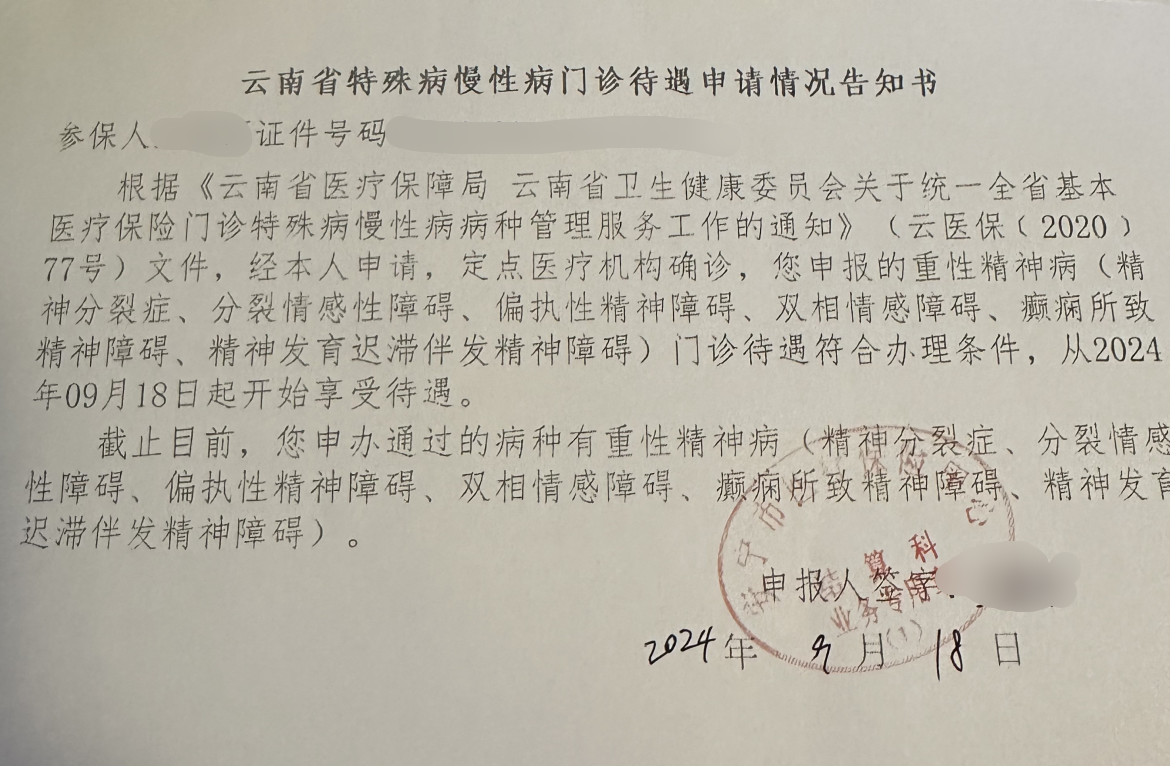 云南省特殊病慢性病门诊待遇申请情况告知书
参保人 证件号码
根据《云南省医疗保障局 云南省卫生健康委员会关于统一全省基本
医疗保险门诊特殊病慢性病病种管理服务工作的通知》（云医保〔2020〕
77号）文件，经本人申请，定点医疗机构确诊，您申报的重性精神病（精
神分裂症、分裂情感性障碍、偏执性精神障碍、双相情感障碍、癫痫所致
精神障碍、精神发育迟滞伴发精神障碍）门诊待遇符合办理条件，从2024
年09月18日起开始享受待遇。
截止目前，您申办通过的病种有重性精神病（精神分裂症、分裂情感
性障碍、偏执性精神障碍、双相情感障碍、癫痫所致精神障碍、精神发育
迟滞伴发精神障碍）。
申报人签字：
2024年 9月 18日
市
结算科
业务专用
(1)